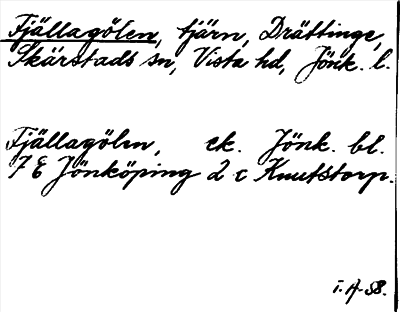 Fjällagölen, tjärn, Drättinge,
Skärstads sn, Vista hd, Jönk. l.
Fjällagölen, ek. Jönk. bl.
7 E Jönköping 2 c Knutstorp.
I. A-58.